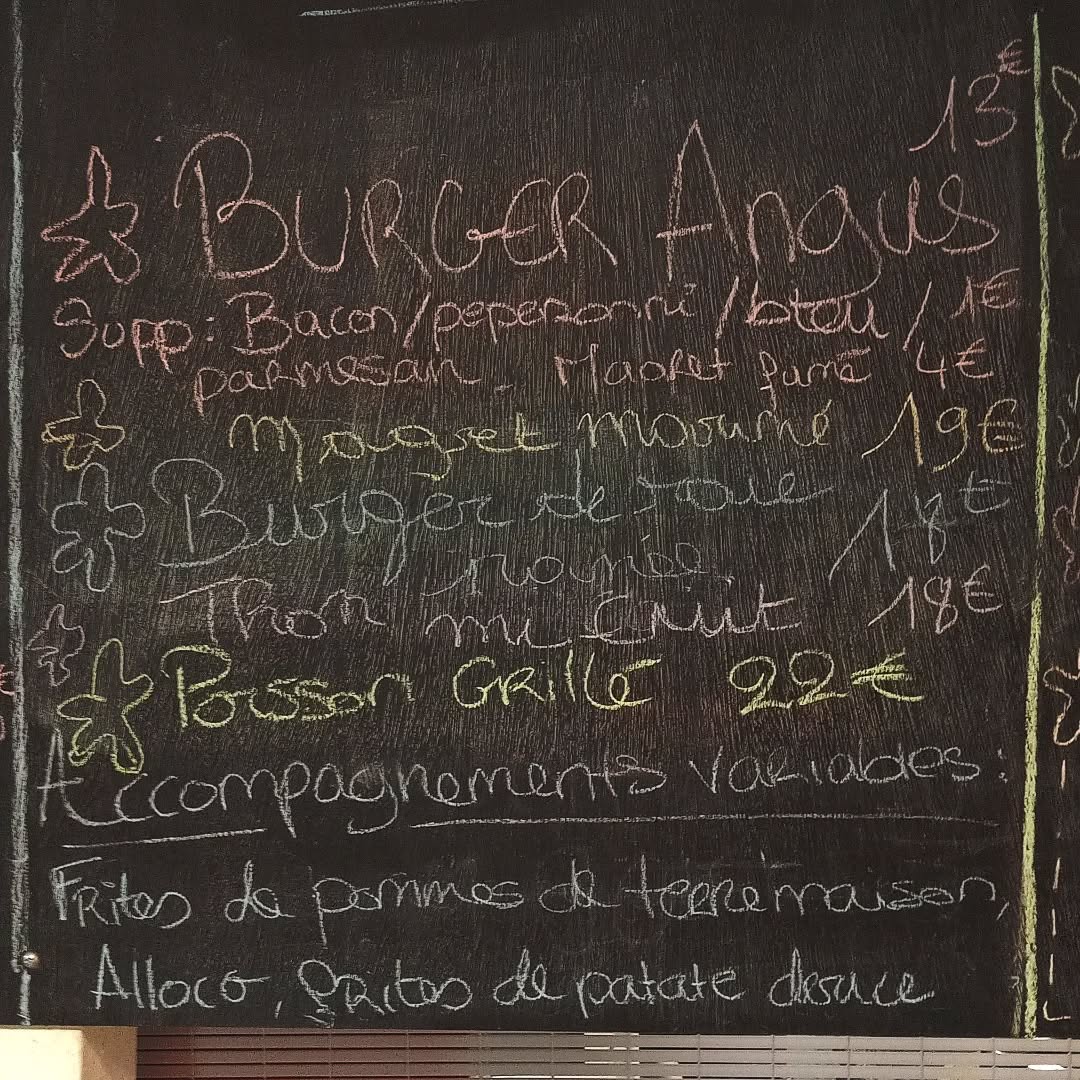 13€
BURGER Angus
Supp: Bacon/peperonni/bleu/1€
parmesan. Magret fumé 4€
Magret mariné 19€
Burger de foie
Thon mi cuit 18€
Poisson GRillé 22€
Accompagnements variables:
FRites de pommes de terre maison,
Alloco, frites de patate douce